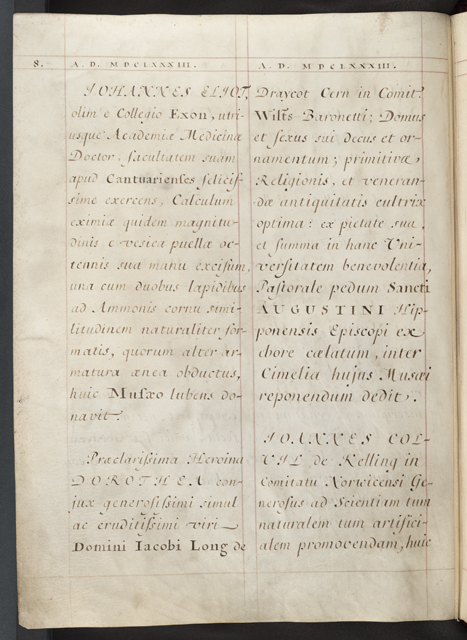 8. A. D. MDCLXXXIII.
JOHANNES ELIOT,
olim e Collegio Exon, utri-
usque Academiæ Medicinæ
Doctor, facultatem suam
apud Cantuarienses felicis-
sime exercens, Calculum
eximiæ quidem magnitu-
dinis, e vesica puellæ oc-
tennis sua manu excisum,
una cum duobus lapidibus
ad Ammonis cornu simi-
litudinem naturaliter for-
matis, quorum alter ar-
matura ænea obductus,
huic Musæo lubens do-
navit.
Præclarissima Heroina
DOROTHEA con-
jux generosissimi simul
ac eruditissimi viri
Domini Iacobi Long de
A. D. MDCLXXXIII.
Draycot Cern in Comit.
Wilts Baronetti; Domus
et sexus sui decus et or-
namentum; primitivæ
Religionis, et veneran-
dæ antiquitatis cultrix
optima: ex pietate sua,
et summa in hanc Uni-
versitatem benevolentia,
Pastorale pedum Sancti
AUGUSTINI Hip-
ponensis Episcopi ex
ebore cælatum, inter
Cimelia hujus Musæi
reponendum dedit.
JOANNES COL-
VIL de Kelling in
Comitatu Norwicensi Ge-
nerosus ad Scientiam tum
naturalem tum artifici-
alem promovendam, huic